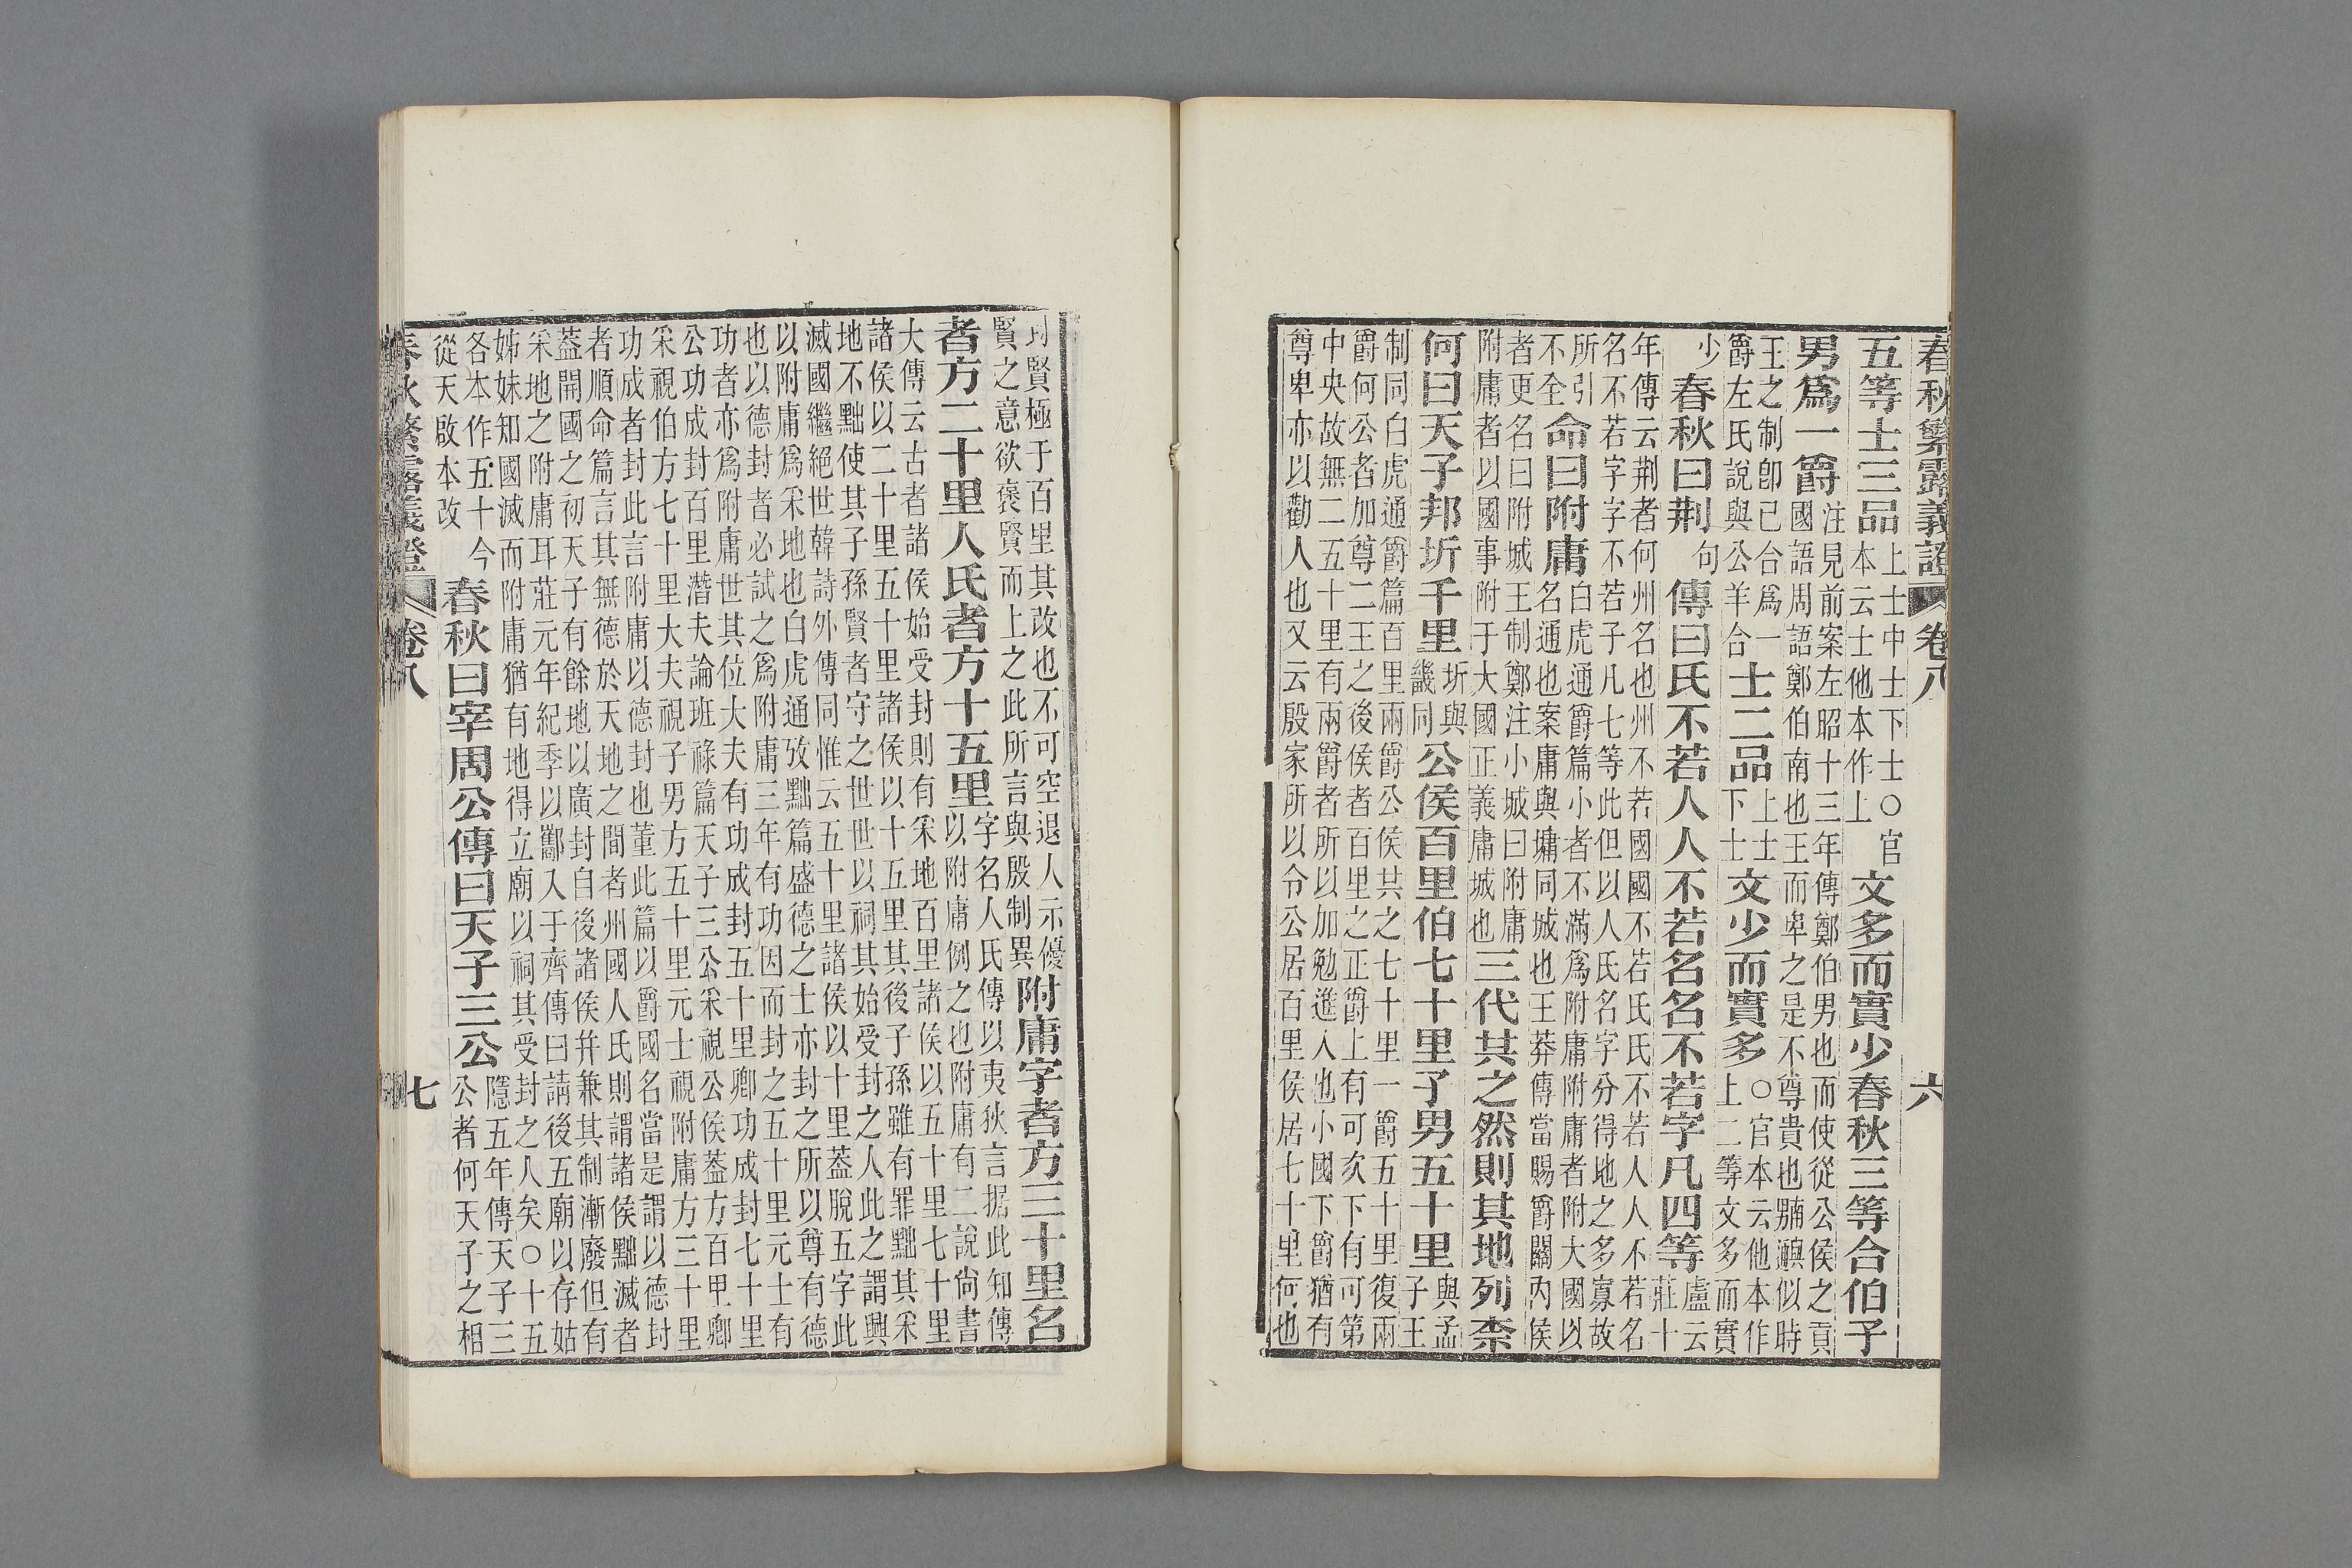 春秋繁露義證 卷八 六
五等士三品
上士中士下士○官
本云士他本作上
文多而實少春秋三等合伯子
男爲一爵
注見前案左昭十三年傳鄭伯男也而使從公侯之貢
國語周語鄭伯南也王而卑之是不尊貴也 似時
王之制卽已合爲一
爵左氏說與公羊合
士二品
上士
下士
文少而實多
○官本云他本作
上二等文多而實
少
春秋曰荆
句
傳曰氏不若人人不若名名不若字凡四等
盧云
莊十
年傳云荆者何州名也州不若國國不若氏氏不若人人不若名
名不若字字不若子凡七等此但以人氏名字分得地之多寡故
所引
不全
命曰附庸
白虎通爵篇小者不滿爲附庸附庸者附大國以
名通也案庸與墉同城也王莽傳當賜爵關內侯
者更名曰附城王制鄭注小城曰附庸
附庸者以國事附于大國正義庸城也
三代共之然則其地列柰
何曰天子邦圻千里
圻與
畿同
公侯百里伯七十里子男五十里
與孟
子王
制同白虎通爵篇百里兩爵公侯共之七十里一爵五十里復兩
爵何公者加尊二王之後侯者百里之正爵上有可次下有可第
中央故無二五十里有兩爵者所以加勉進人也小國下爵猶有
尊卑亦以勸人也又云殷家所以令公居百里侯居七十里何也
封賢極于百里其改也不可空退人示優
賢之意欲褒賢而上之此所言與殷制異
附庸字者方三十里名
者方二十里人氏者方十五里
字名人氏傳以夷狄言据此知傳
以附庸例之也附庸有二說尙書
大傳云古者諸侯始受封則有采地百里諸侯以五十里七十里
諸侯以二十里五十里諸侯以十五里其後子孫雖有罪黜其采
地不黜使其子孫賢者守之世世以祠其始受封之人此之謂興
滅國繼絕世韓詩外傳同惟云五十里諸侯以十里蓋脫五字此
以附庸爲采地也白虎通攷黜篇盛德之士亦封之所以尊有德
也以德封者必試之爲附庸三年有功因而封之五十里元士有
功者亦爲附庸世其位大夫有功成封五十里卿功成封七十里
公功成封百里潛夫論班祿篇天子三公采視公侯蓋方百里卿
采視伯方七十里大夫視子男方五十里元士視附庸方三十里
功成者封此言附庸以德封也董此篇以爵國名當是謂以德封
者順命篇言其無德於天地之間者州國人氏則謂諸侯黜滅者
蓋開國之初天子有餘地以廣封自後諸侯幷兼其制漸廢但有
采地之附庸耳莊元年紀季以酅入于齊傳曰請後五廟以存姑
姊妹知國滅而附庸猶有地得立廟以祠其受封之人矣○十五
各本作五十今
從天啟本改
春秋曰宰周公傳曰天子三公
隱五年傳天子三
公者何天子之相
春秋繁露義證 卷八 七